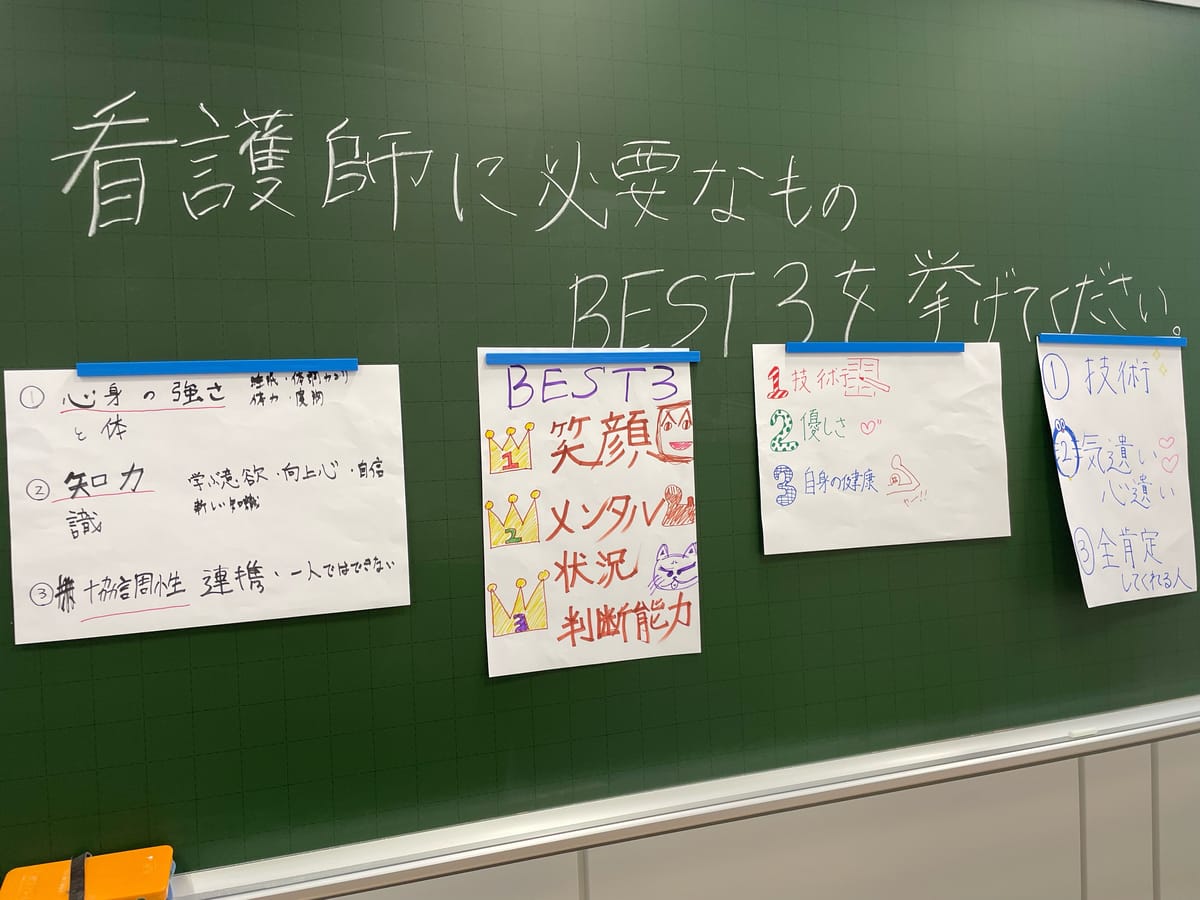 看護師に必要なもの
BEST3を挙げてください。
① 心身の強さ
体力・
と体
② 知力 学ぶ意欲・向上心・自信
識 新しい知識
③ 協調性 連携・一人ではできない
BEST3
1 笑顔
2 メンタル
3 状況
判断能力
1 技術
2 優しさ
3 自身の健康
① 技術
② 気遣い
心遣い
③ 全肯定
してくれる人